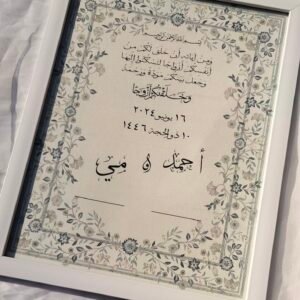 بسم الله الرحمن الرحيم
ومن آياته أن خلق لكم من
أنفسكم أزواجا لتسكنوا إليها
وجعل بينكم مودة ورحمة
وخلقناكم أزواجا
١٦ يونيو ٢٠٢٤
١٠ ذو الحجة ١٤٤٦
أحمد ه مي